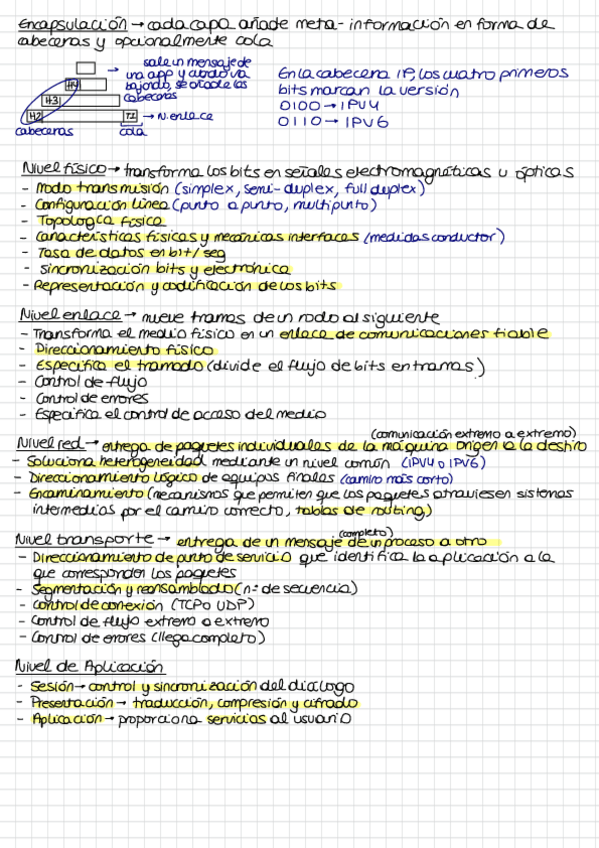 Encapsulación → cada capa añade meta-información en forma de
cabeceras y opcionalmente cola
→ sale un mensaje de
una app y cuando va
bajando, se añade las
cabeceras
H4
H3
H2 T2 → N. enlace
cabeceras cola
En la cabecera IP, los cuatro primeros
bits marcan la versión
0100 → IPV4
0110 → IPV6
Nivel físico → transforma los bits en señales electromagnéticas u ópticas
- Modo transmisión (simplex, semi-duplex, full duplex)
- Configuración línea (punto a punto, multipunto)
- Topología física
- Características físicas y mecánicas interfaces (medidas conductor)
- Tasa de datos en bit/seg
- sincronización bits y electrónica
- Representación y codificación de los bits
Nivel enlace → mueve tramas de un nodo al siguiente
- Transforma el medio físico en un enlace de comunicaciones fiable
- Direccionamiento físico
- Especifica el tramado (divide el flujo de bits en tramas)
- Control de flujo
- Control de errores
- Especifica el control de acceso del medio
(comunicación extremo a extremo)
Nivel red → entrega de paquetes individuales de la máquina origen a la destino
- Soluciona heterogeneidad mediante un nivel común (IPV4 o IPV6)
- Direccionamiento lógico de equipos finales (camino más corto)
- Encaminamiento (mecanismos que permiten que los paquetes atraviesen sistemas
intermedios por el camino correcto, tablas de routing)
(completo)
Nivel transporte → entrega de un mensaje de un proceso a otro
- Direccionamiento de punto de servicio que identifica la aplicación a la
que corresponden los paquetes
- Segmentación y reensamblado (nº de secuencia)
- Control de conexión (TCP o UDP)
- Control de flujo extremo a extremo
- Control de errores (llega completo)
Nivel de Aplicación
- Sesión → control y sincronización del diálogo
- Presentación → traducción, compresión y cifrado
- Aplicación → proporciona servicios al usuario